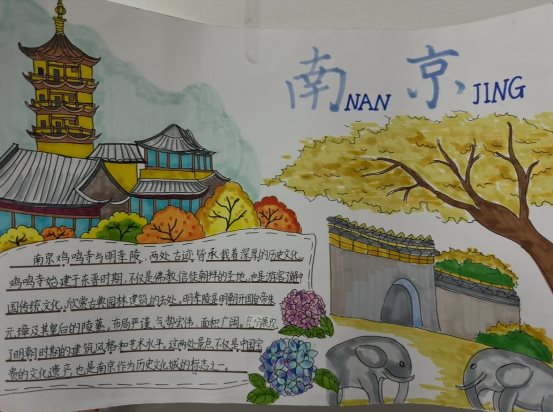 南 NAN 京 JING
南京鸡鸣寺与明孝陵,两处古迹,皆承载着深厚的历史文化。
鸡鸣寺始建于东晋时期,不仅是佛教信徒朝拜的圣地,也是游客领略中
国传统文化、欣赏古典园林建筑的去处。明孝陵是明朝开国皇帝朱
元璋及其皇后的陵墓,布局严谨,气势宏伟,面积广阔,充分展示
了明朝时期的建筑风格和艺术水平。这两处景点不仅是中国宝
贵的文化遗产,也是南京作为历史文化城的标志之一。